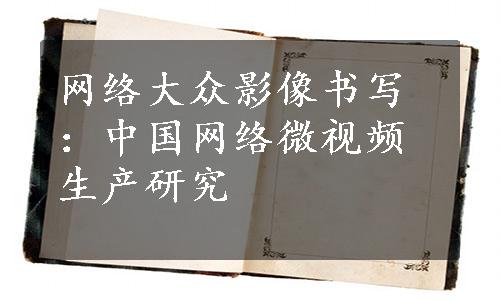 网络大众影像书写
：中国网络微视频
生产研究